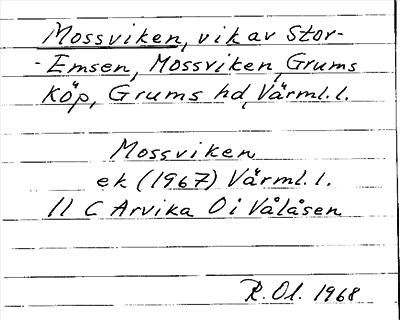 Mossviken, vik av Stor-
-Emsen, Mossviken, Grums
köp, Grums hd, Värml. l.
Mossviken
ek (1967) Värml. l.
11 C Arvika O i Vålåsen
R. Ol. 1968